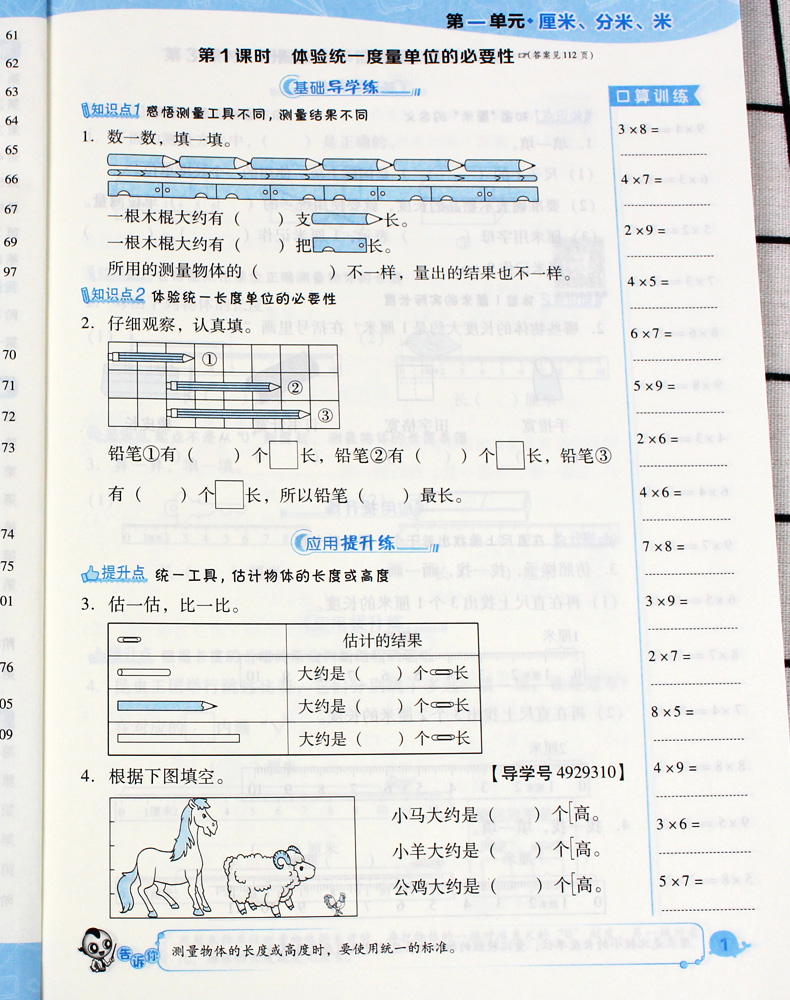 61
62
63
64
65
66
67
69
97
70
71
72
73
74
75
01
76
05
09
第一单元·厘米、分米、米
第1课时 体验统一度量单位的必要性 (答案见112页)
基础导学练
知识点1 感悟测量工具不同,测量结果不同
1. 数一数,填一填。
一根木棍大约有( )支 长。
一根木棍大约有( )把 长。
所用的测量物体的( )不一样,量出的结果也不一样。
知识点2 体验统一长度单位的必要性
2. 仔细观察,认真填。
①
②
③
铅笔①有( )个□长,铅笔②有( )个□长,铅笔③
有( )个□长,所以铅笔( )最长。
应用提升练
提升点 统一工具,估计物体的长度或高度
3. 估一估,比一比。
估计的结果
大约是( )个 长
大约是( )个 长
大约是( )个 长
4. 根据下图填空。 【导学号 4929310】
小马大约是( )个[高。
小羊大约是( )个[高。
公鸡大约是( )个[高。
告诉你 测量物体的长度或高度时,要使用统一的标准。
口算训练
3×8=
4×7=
2×9=
4×5=
6×7=
5×9=
2×6=
4×6=
7×8=
3×9=
2×7=
8×5=
4×9=
3×6=
5×7=
1